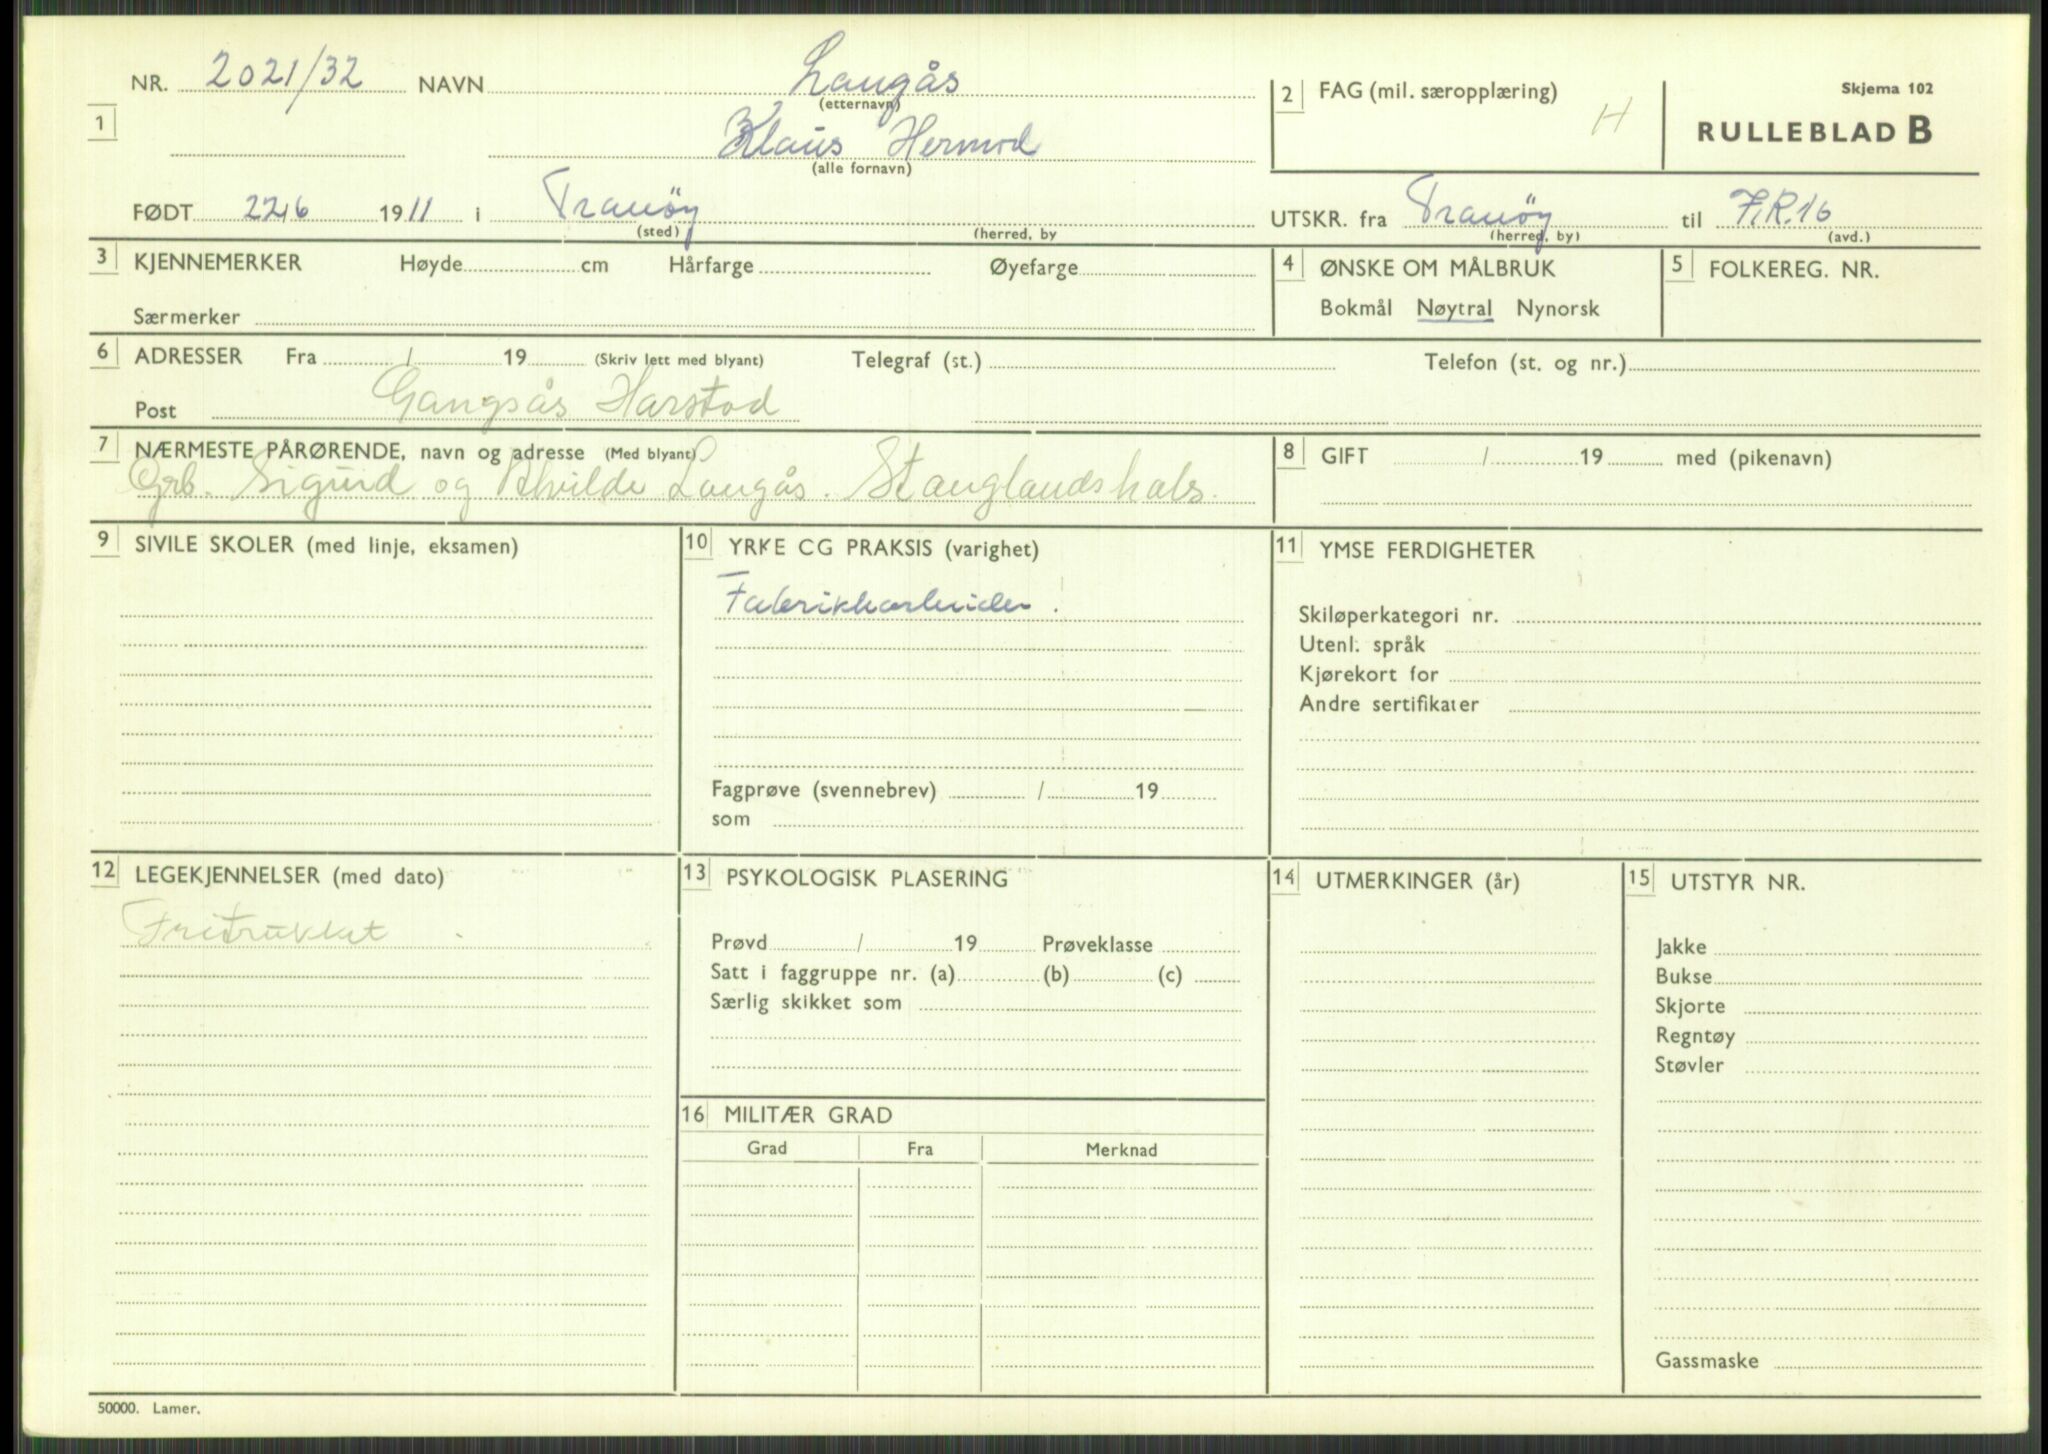 NR. 2021/32 NAVN Langås
(etternavn)
1 Klaus Hermod
(alle fornavn)
2 FAG (mil. særopplæring) H
Skjema 102
RULLEBLAD B
FØDT 22/6 1911 i Tranöy
(sted) (herred, by
UTSKR. fra Tranöy til F.R.16
(herred, by) (avd.)
3 KJENNEMERKER Høyde cm Hårfarge Øyefarge
Særmerker
4 ØNSKE OM MÅLBRUK
Bokmål Nøytral Nynorsk
5 FOLKEREG. NR.
6 ADRESSER Fra / 19 (Skriv lett med blyant) Telegraf (st.) Telefon (st. og nr.)
Post Gangsås Harstad
7 NÆRMESTE PÅRØRENDE, navn og adresse (Med blyant)
Sigurd og Alvilde Langås. Stanglandshals.
8 GIFT / 19 med (pikenavn)
9 SIVILE SKOLER (med linje, eksamen)
10 YRKE CG PRAKSIS (varighet)
Fabrikkarbeider.
Fagprøve (svennebrev) / 19
som
11 YMSE FERDIGHETER
Skiløperkategori nr.
Utenl. språk
Kjørekort for
Andre sertifikater
12 LEGEKJENNELSER (med dato)
Fritrukket
13 PSYKOLOGISK PLASERING
Prøvd / 19 Prøveklasse
Satt i faggruppe nr. (a) (b) (c)
Særlig skikket som
14 UTMERKINGER (år)
15 UTSTYR NR.
Jakke
Bukse
Skjorte
Regntøy
Støvler
Gassmaske
16 MILITÆR GRAD
Grad Fra Merknad
50000. Lamer.